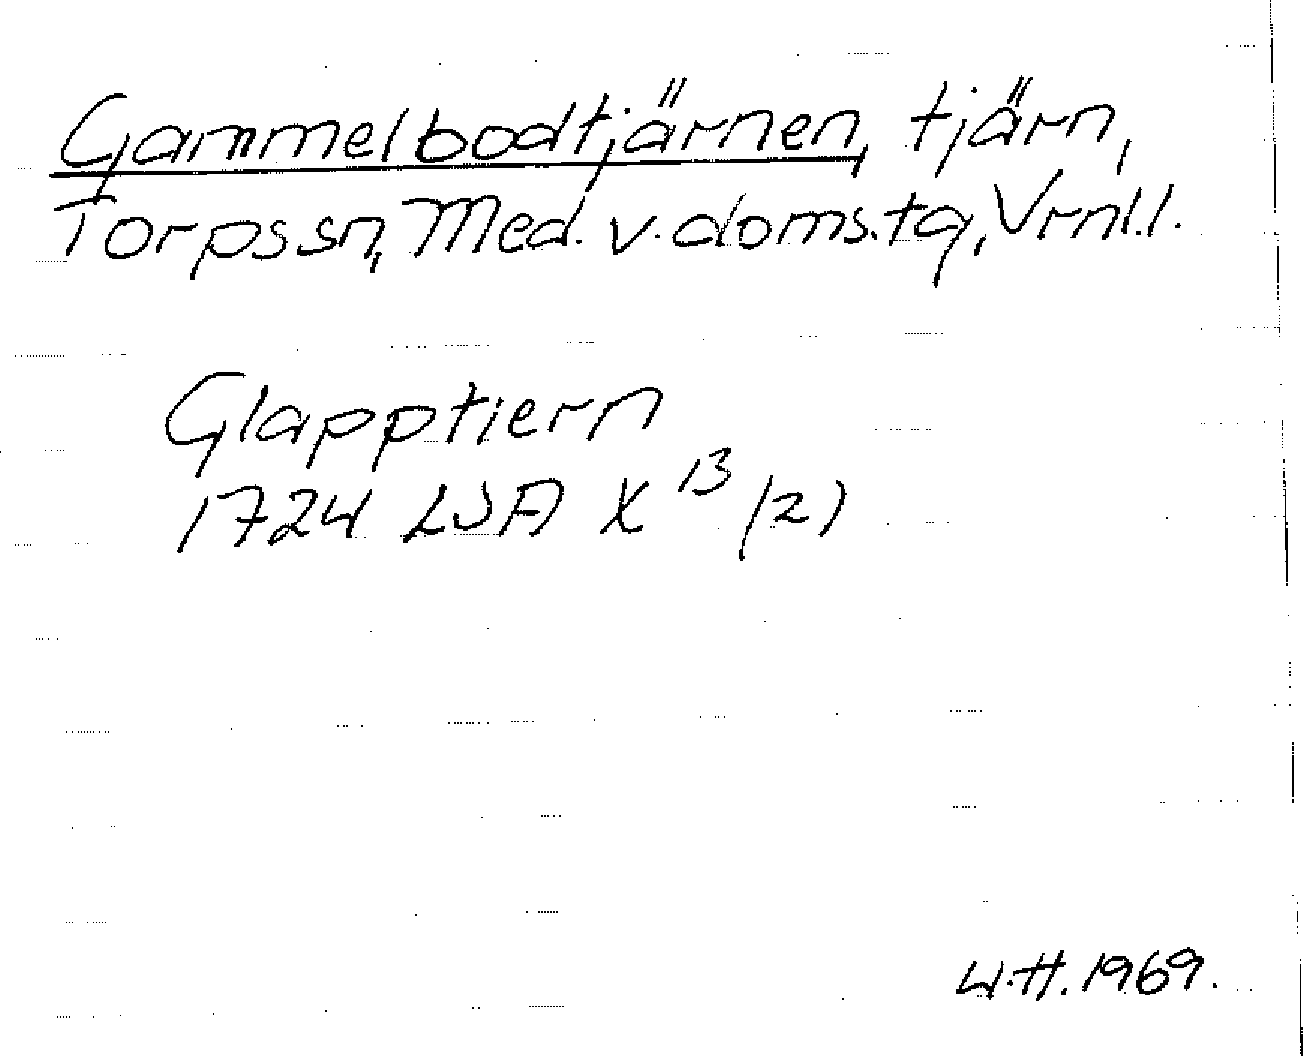 Gammelbodtjärnen, tjärn,
Torps sn, Med. v. doms. tg, Vrnl.l.
Glapptiern
1724 LSA X 13 (2)
W.H. 1969.